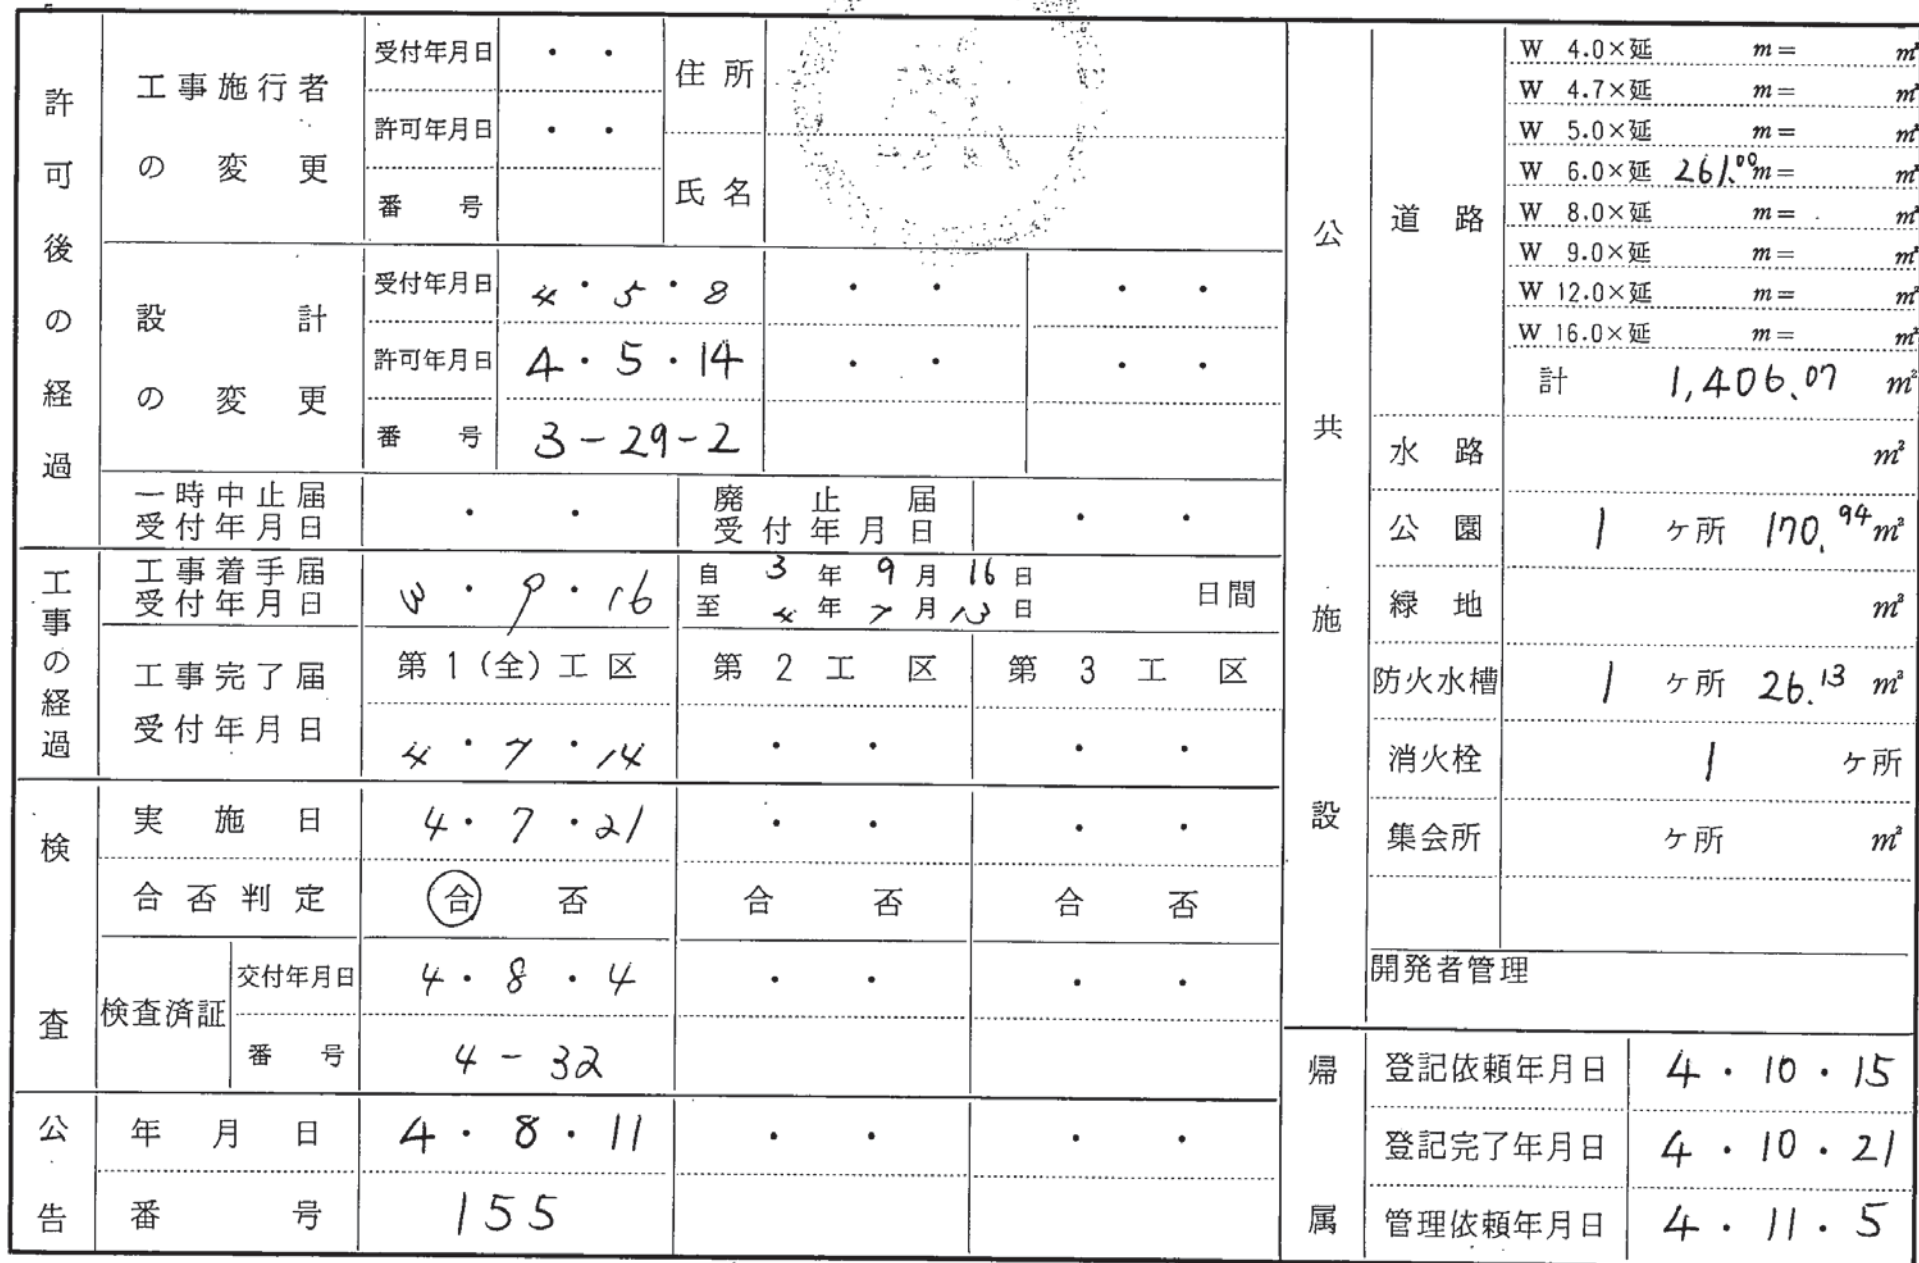 許可後の経過
工事施行者の変更
受付年月日 ・ ・
許可年月日 ・ ・
番号
住所
氏名
設計の変更
受付年月日 4・5・8 ・ ・ ・ ・
許可年月日 4・5・14 ・ ・ ・ ・
番号 3-29-2
一時中止届
受付年月日 ・ ・
廃止届
受付年月日 ・ ・
工事の経過
工事着手届
受付年月日 3・9・16
自 3年9月16日
至 4年7月13日
日間
工事完了届
受付年月日
第1(全)工区 第2工区 第3工区
4・7・14 ・ ・ ・ ・
検査
実施日 4・7・21 ・ ・ ・ ・
合否判定 合 否 合 否 合 否
検査済証
交付年月日 4・8・4 ・ ・ ・ ・
番号 4-32
公告
年月日 4・8・11 ・ ・ ・ ・
番号 155
公共施設
道路
W 4.0×延 m= m²
W 4.7×延 m= m²
W 5.0×延 m= m²
W 6.0×延 261.00m= m²
W 8.0×延 m= m²
W 9.0×延 m= m²
W 12.0×延 m= m²
W 16.0×延 m= m²
計 1,406.07 m²
水路 m²
公園 1 ヶ所 170.94 m²
緑地 m²
防火水槽 1 ヶ所 26.13 m²
消火栓 1 ヶ所
集会所 ヶ所 m²
開発者管理
帰属
登記依頼年月日 4・10・15
登記完了年月日 4・10・21
管理依頼年月日 4・11・5